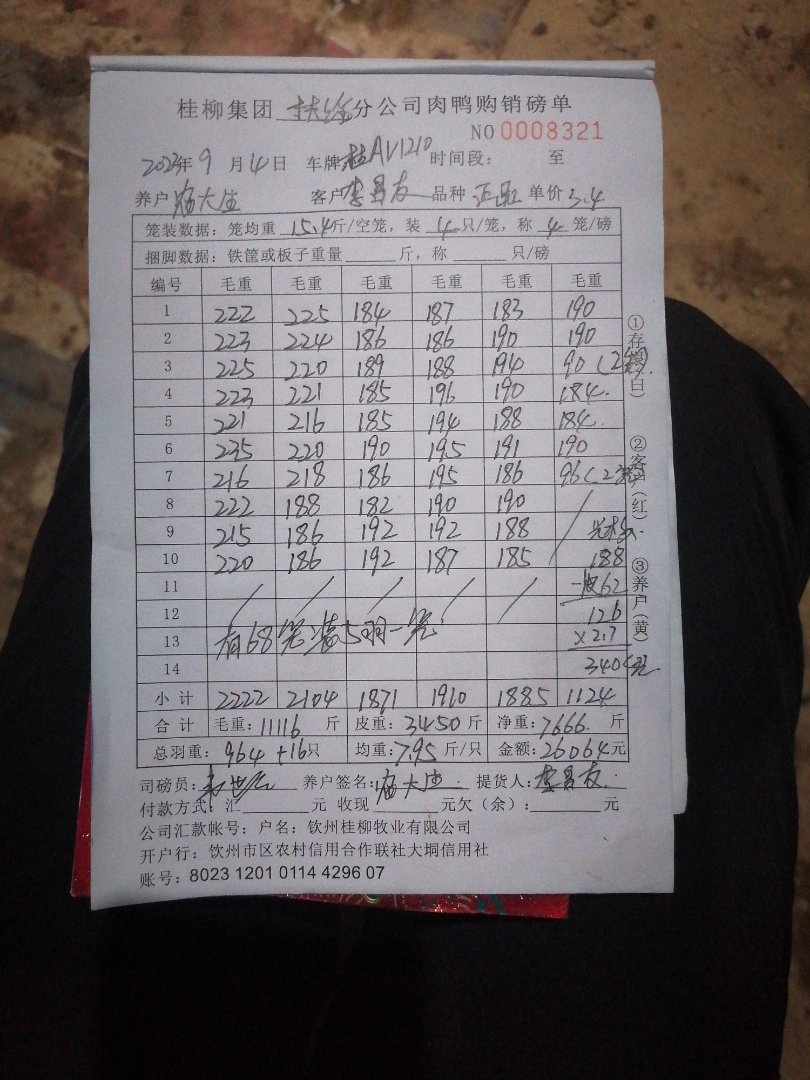 桂柳集团扶绥分公司肉鸭购销磅单
NO 0008321
2023年9月4日 车牌桂AV1210 时间段： 至
养户 大生 客户李昌友 品种 单价3.4
笼装数据：笼均重15.4斤/空笼，装4只/笼，称4笼/磅
捆脚数据：铁筐或板子重量____斤，称____只/磅
编号 毛重 毛重 毛重 毛重 毛重 毛重
1 222 225 184 187 183 190
2 223 224 186 186 190 190
3 225 220 189 188 194 90(2笼)
4 223 221 185 196 190 184.
5 221 216 185 194 188 184.
6 235 220 190 195 191 190
7 216 218 186 195 186 96(2笼)
8 222 188 182 190 190
9 215 186 192 192 188
10 220 186 192 187 185 188
11 -皮62
12 126
13 有68笼装5羽一笼 ×2.7
14 340
小计 2222 2104 1871 1910 1885 1124
合计 毛重：11116斤 皮重：3450斤 净重：7666.斤
总羽重：964+16只 均重：7.95斤/只 金额：26064元
司磅员： 养户签名： 大生 提货人：李昌友
付款方式：汇____元 收现____元欠（余）：____元
公司汇款帐号：户名：钦州桂柳牧业有限公司
开户行：钦州市区农村信用合作联社大垌信用社
账号：8023 1201 0114 4296 07
①存根（白） ②客户（红） ③养户（黄）